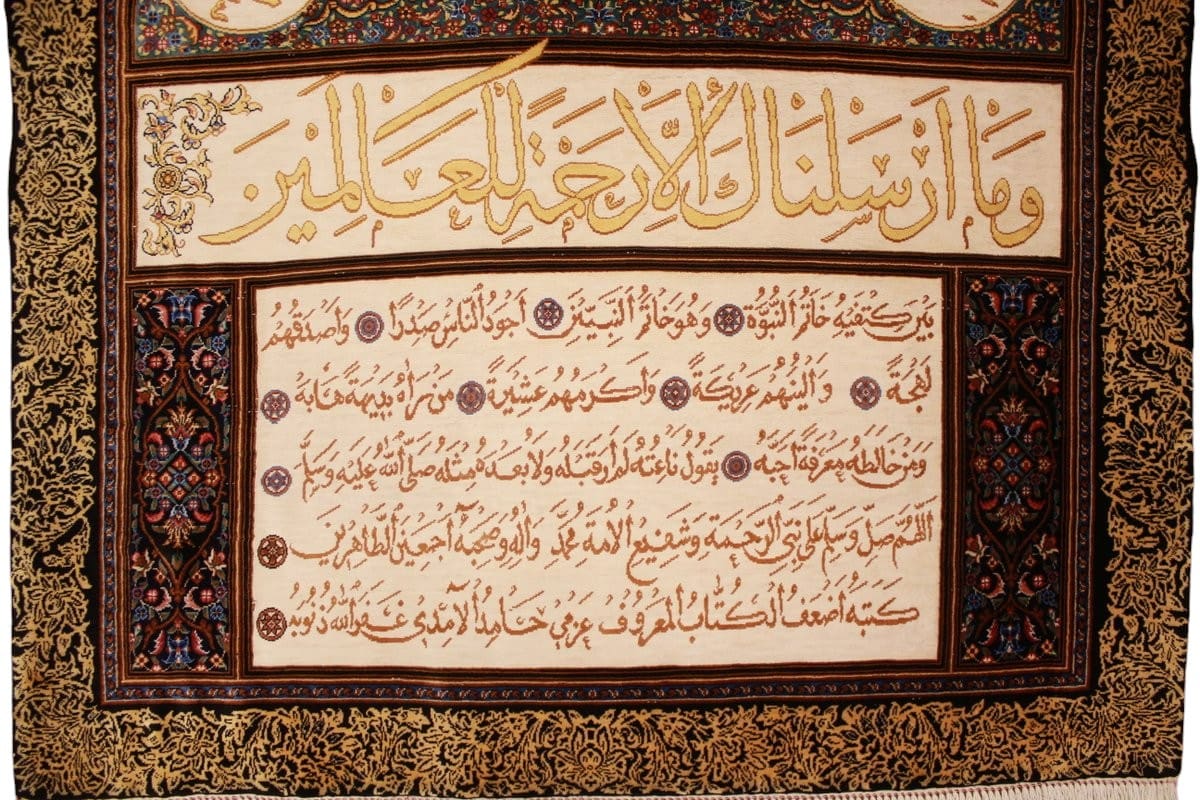 وَمَا أَرْسَلْنَاكَ إِلَّا رَحْمَةً لِلْعَالَمِينَ
بَيْنَ كَتِفَيْهِ خَاتَمُ النُّبُوَّةِ وَهُوَ خَاتَمُ النَّبِيِّينَ أَجْوَدُ النَّاسِ صَدْرًا وَأَصْدَقُهُمْ
لَهْجَةً وَأَلْيَنُهُمْ عَرِيكَةً وَأَكْرَمُهُمْ عَشِيرَةً مَنْ رَآهُ بَدِيهَةً هَابَهُ
وَمَنْ خَالَطَهُ مَعْرِفَةً أَحَبَّهُ يَقُولُ نَاعِتُهُ لَمْ أَرَ قَبْلَهُ وَلَا بَعْدَهُ مِثْلَهُ صَلَّى اللهُ عَلَيْهِ وَسَلَّمَ
اللَّهُمَّ صَلِّ وَسَلِّمْ عَلَى نَبِيِّ الرَّحْمَةِ وَشَفِيعِ الْأُمَّةِ مُحَمَّدٍ وَآلِهِ وَصَحْبِهِ أَجْمَعِينَ الطَّاهِرِينَ
كَتَبَهُ أَضْعَفُ الْكُتَّابِ الْمَعْرُوفُ بِعَزْمِي حَامِدُ الْآمِدِي غَفَرَ اللهُ ذُنُوبَهُ